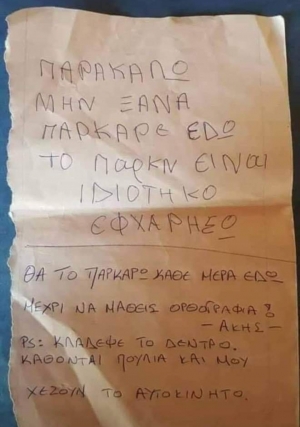 ΠΑΡΑΚΑΛΩ
ΜΗΝ ΞΑΝΑ
ΠΑΡΚΑΡΕ ΕΔΩ
ΤΟ ΠαΡΚΝ ΕΙΝΑΙ
ΙΔΙΟΤΗΚΟ
ΕΦΧΑΡΗΣΩ
ΘΑ ΤΟ ΠΑΡΚΑΡΩ ΚΑΘΕ ΜΕΡΑ ΕΔΩ
ΜΕΧΡΙ ΝΑ ΜΑΘΕΙΣ ΟΡΘΟΓΡΑΦΙΑ!
- ΑΚΗΣ -
PS: ΚΛΑΔΕΨΕ ΤΟ ΔΕΝΤΡΟ.
ΚΑΘΟΝΤΑΙ ΠΟΥΛΙΑ ΚΑΙ ΜΟΥ
ΧΕΖΟΥΝ ΤΟ ΑΥΤΟΚΙΝΗΤΟ.